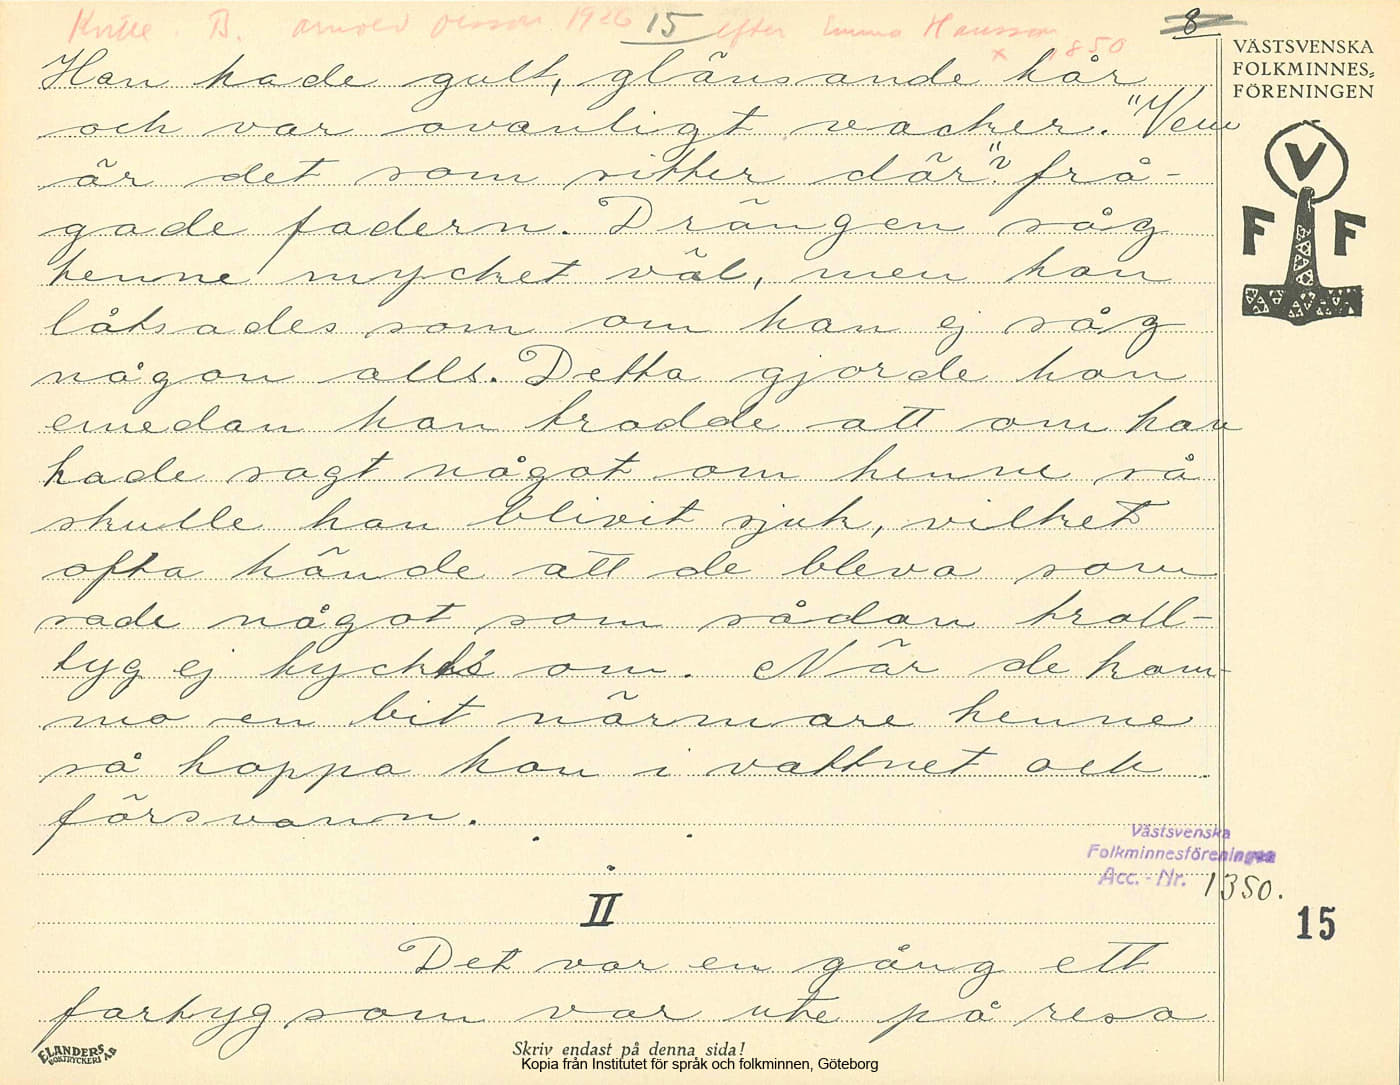 Knille. B. Arnold Olsson 1926 15 efter Emma Hansson 8
x 1850
VÄSTSVENSKA
FOLKMINNES-
FÖRENINGEN
V
F F
Hon hade gult, glänsande hår
och var ovanligt vacker. "Vem
är det som sitter där"? frå-
gade fadern. Drängen såg
henne mycket väl, men han
låtsades som om han ej såg
någon alls. Detta gjorde han
emedan han trodde att om han
hade sagt något om henne så
skulle han blivit sjuk, vilket
ofta hände att de bleva som
sade något som sådan troll-
tyg ej tyckte om. När de kom-
mo en bit närmare henne
så hoppa hon i vattnet och
försvann.
Västsvenska
Folkminnesföreningen
Acc. - Nr. 1350.
II
15
Det var en gång ett
fartyg som var ute på resa
ELANDERS
BOKTRYCKERI AB
Skriv endast på denna sida!
Kopia från Institutet för språk och folkminnen, Göteborg